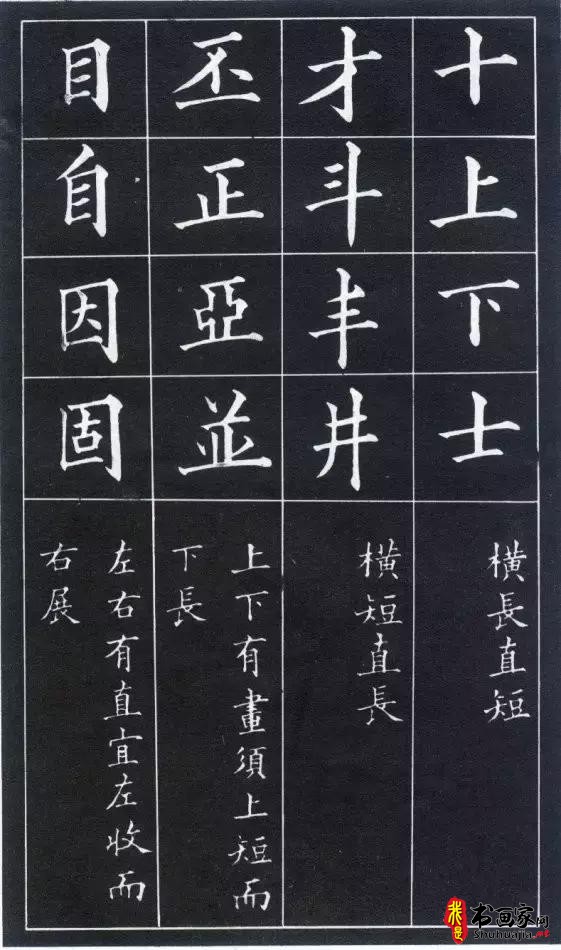 十上下士
橫長直短
才斗丰井
橫短直長
丕正亞並
上下有畫須上短而
下長
目自因固
左右有直宜左收而
右展
我是
书画家网
Shuhuajia.net